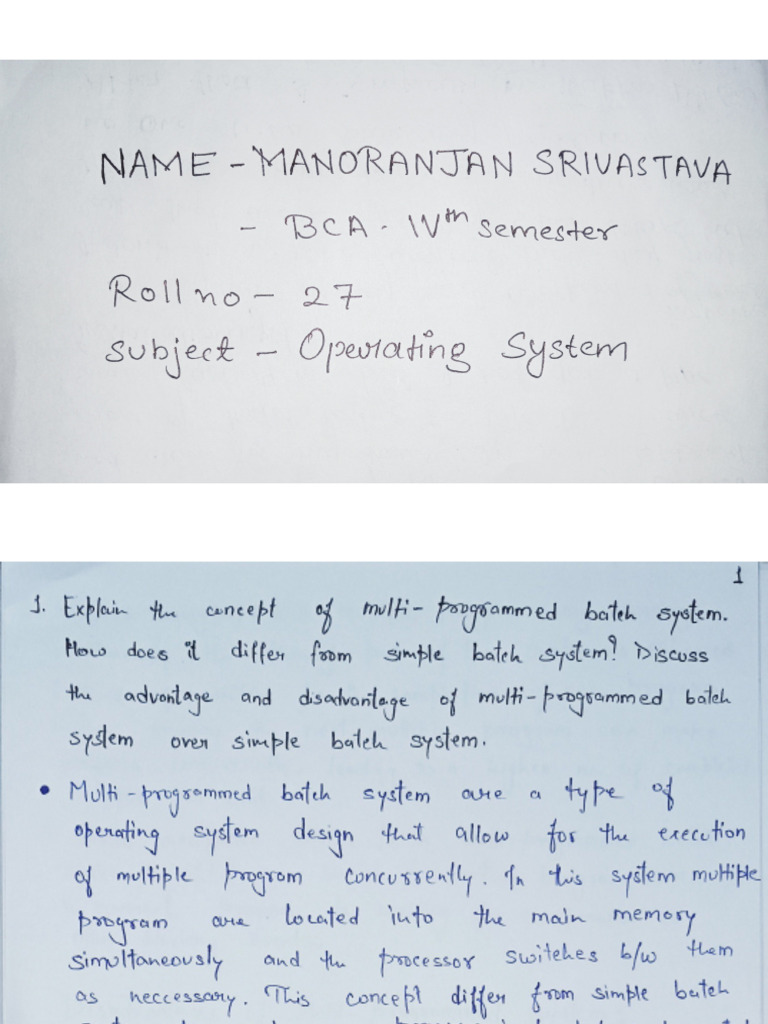 NAME - MANORANJAN SRIVASTAVA
- BCA - IVth semester
Roll no - 27
Subject - Operating System
1
1. Explain the concept of multi-programmed batch system.
How does it differ from simple batch system? Discuss
the advantage and disadvantage of multi-programmed batch
system over simple batch system.
• Multi-programmed batch system are a type of
operating system design that allow for the execution
of multiple program concurrently. In this system multiple
program are located into the main memory
simultaneously and the processor switches b/w them
as neccessary. This concept differ from simple batch